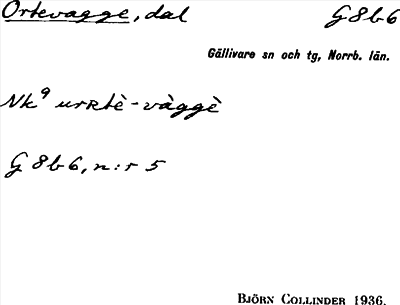 Ortevagge, dal G8b6
Gällivare sn och tg, Norrb. län.
Nk⁹ urRtè-vàggè
G 8b6, n:r 5
BJÖRN COLLINDER 1936.